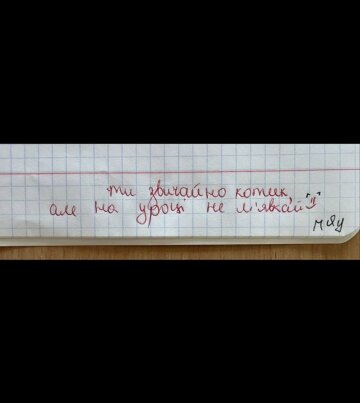 ти звичайно котик,
але на уроці не м'явкай "1"
мяу